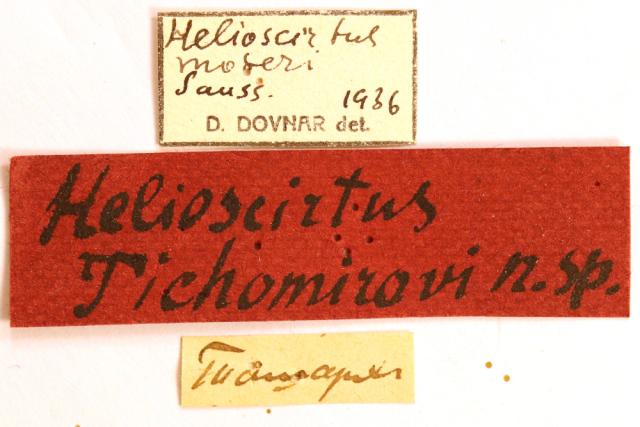 Helioscirtus
moseri
Sauss.
1936
D. DOVNAR det.
Helioscirtus
Tichomirovi n. sp.